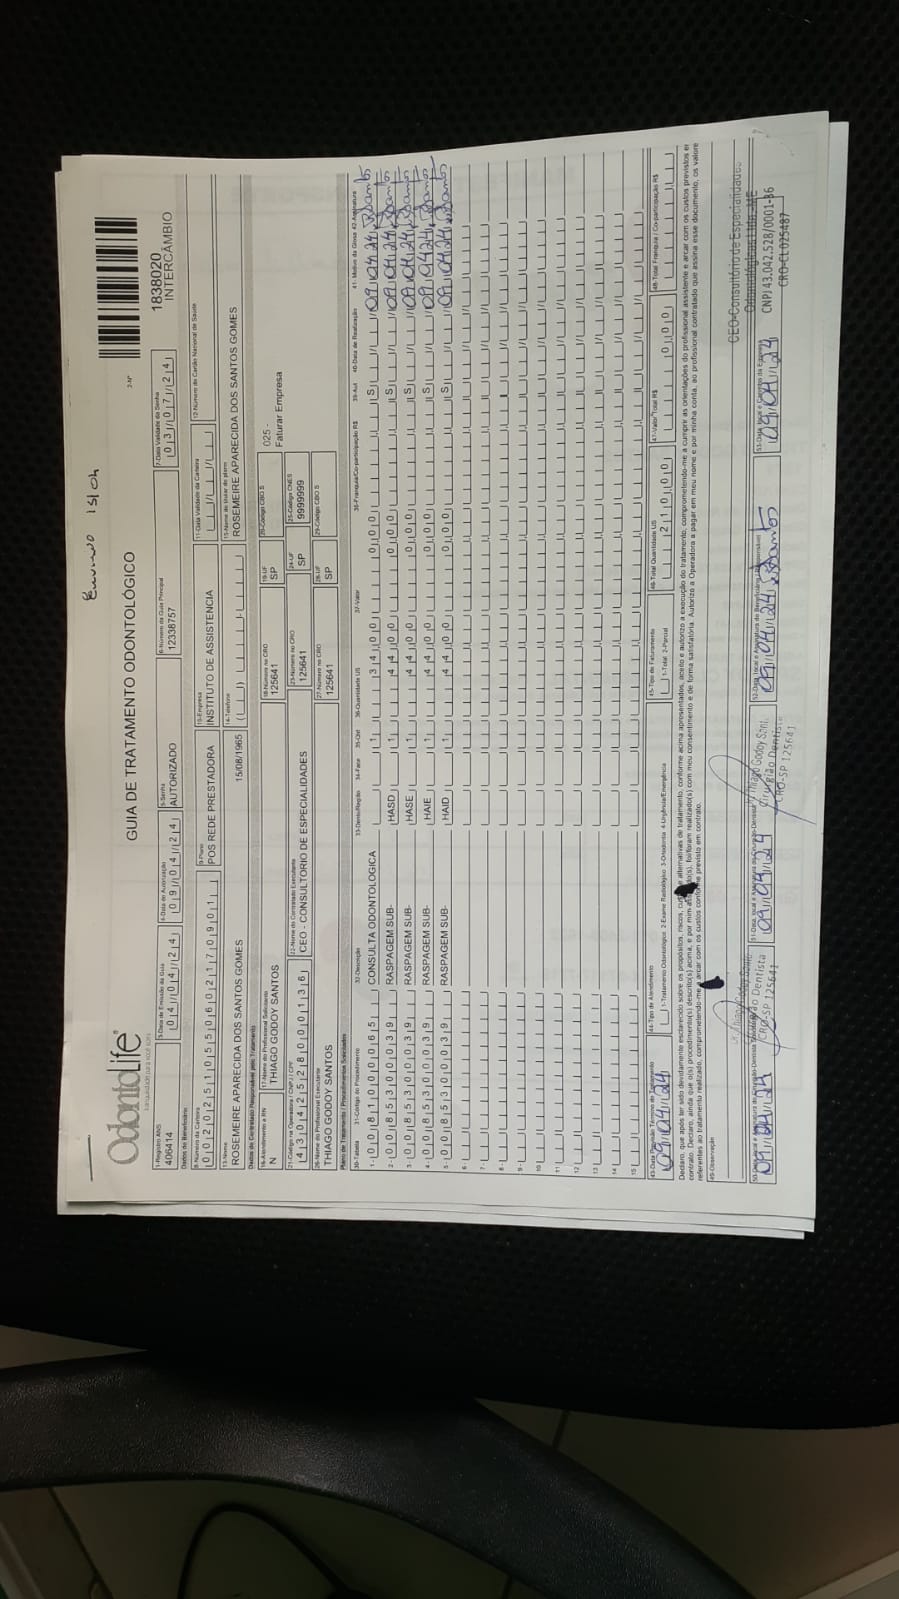 Enviado 15/04
OdontoLife®
tranquilidade para você sorrir
GUIA DE TRATAMENTO ODONTOLÓGICO
2-Nº
1838020
INTERCÂMBIO
1-Registro ANS
406414
3-Data de Emissão da Guia
04/04/24
4-Data de Autorização
09/04/24
5-Senha
AUTORIZADO
6-Número da Guia Principal
12338757
7-Data Validade da Senha
03/07/24
Dados do Beneficiário
8-Número da Carteira
00202510550602170901
9-Plano
POS REDE PRESTADORA
10-Empresa
INSTITUTO DE ASSISTENCIA
11-Data Validade da Carteira
12-Número do Cartão Nacional de Saúde
13-Nome
ROSEMEIRE APARECIDA DOS SANTOS GOMES
15/08/1965
14-Telefone
15-Nome do titular do plano
ROSEMEIRE APARECIDA DOS SANTOS GOMES
Dados do Contratado Responsável pelo Tratamento
16-Atendimento a RN
N
17-Nome do Profissional Solicitante
THIAGO GODOY SANTOS
18-Número no CRO
125641
19-UF
SP
20-Código CBO S
025 -
Faturar Empresa
21-Código na Operadora / CNPJ / CPF
43042528000136
22-Nome do Contratado Executante
CEO - CONSULTORIO DE ESPECIALIDADES
23-Número no CRO
125641
24-UF
SP
25-Código CNES
9999999
26-Nome do Profissional Executante
THIAGO GODOY SANTOS
27-Número no CRO
125641
28-UF
SP
29-Código CBO S
Plano de Tratamento / Procedimentos Solicitados
30-Tabela 31-Código do Procedimento 32-Descrição 33-Dente/Região 34-Face 35-Qtd 36-Quantidade US 37-Valor 38-Franquia/Co-participação R$ 39-Aut 40-Data de Realização 41-Motivo da Glosa 42-Assinatura
1- 00 81000065 CONSULTA ODONTOLOGICA 1 34,00 0,00 S 09/04/24
2- 00 85300039 RASPAGEM SUB- HASD 1 44,00 0,00 S 09/04/24
3- 00 85300039 RASPAGEM SUB- HASE 1 44,00 0,00 S 09/04/24
4- 00 85300039 RASPAGEM SUB- HAIE 1 44,00 0,00 S 09/04/24
5- 00 85300039 RASPAGEM SUB- HAID 1 44,00 0,00 S 09/04/24
6-
7-
8-
9-
10
11
12
13
14
15
43-Data Previsão Término do Tratamento
09/04/24
44-Tipo de Atendimento
1-Tratamento Odontológico 2-Exame Radiológico 3-Ortodontia 4-Urgência/Emergência
45-Tipo de Faturamento
1-Total 2-Parcial
46-Total Quantidade US
210,00
47-Valor Total R$
0,00
48-Total Franquia / Co-participação R$
Declaro, que após ter sido devidamente esclarecido sobre os propósitos, riscos, e alternativas de tratamento, conforme acima apresentados, aceito e autorizo a execução do tratamento, comprometendo-me a cumprir as orientações do profissional assistente e arcar com os custos previstos em
contrato. Declaro, ainda que o(s) procedimento(s) descrito(s) acima, e por mim assinado(s), foi/foram realizado(s) com meu consentimento e de forma satisfatória. Autorizo a Operadora a pagar em meu nome e por minha conta, ao profissional contratado que assina esse documento, os valores
referentes ao tratamento realizado, comprometendo-me a arcar com os custos conforme previsto em contrato.
49-Observação
CEO-Consultório de Especialidades
Odontológicas Ltda -ME
CNPJ 43.042.528/0001-36
CRO-CL 025487
09/04/24
Cirurgião Dentista
CRO-SP 125641
51-Data, local e Assinatura do Cirurgião-Dentista
09/04/24
Thiago Godoy Santos
Cirurgião Dentista
CRO-SP 125641
52-Data, local e Assinatura do Beneficiário / Responsável
09/04/24
53-Data, local e Carimbo da Empresa
09/04/24